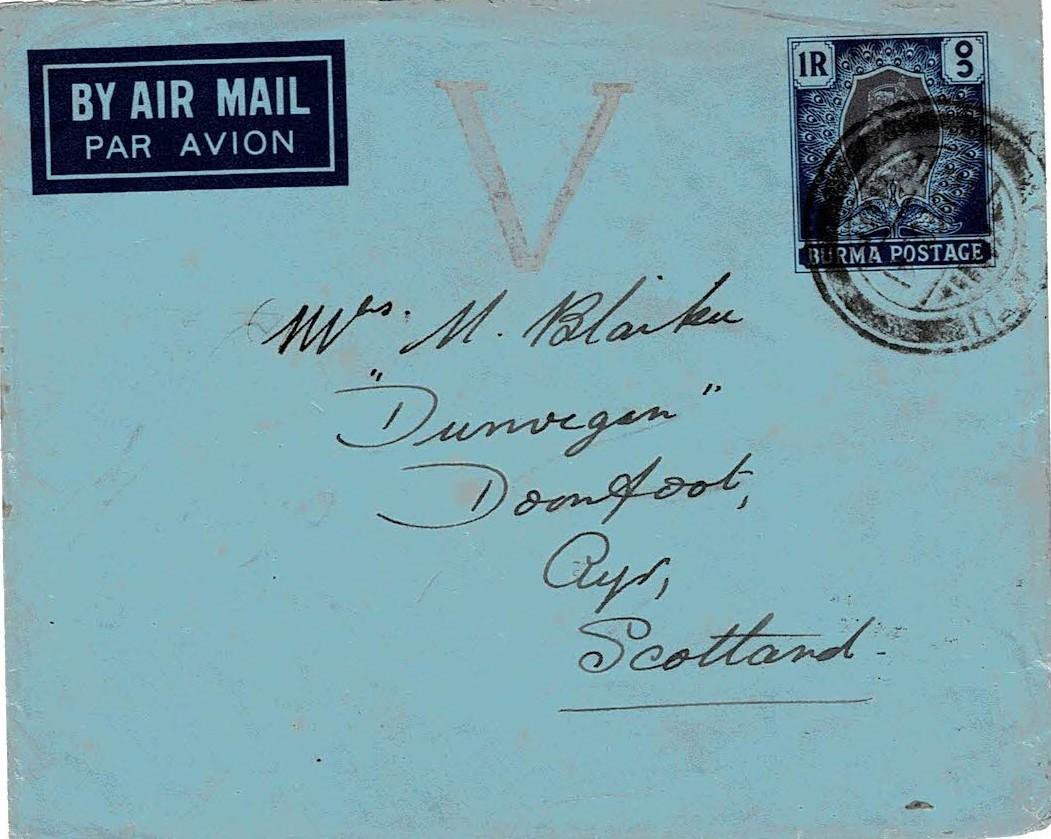 BY AIR MAIL
PAR AVION
V
1R
၁ိ
BURMA POSTAGE
Mrs. M. Blaikie
"Dunvegan"
Doonfoot,
Ayr,
Scotland.